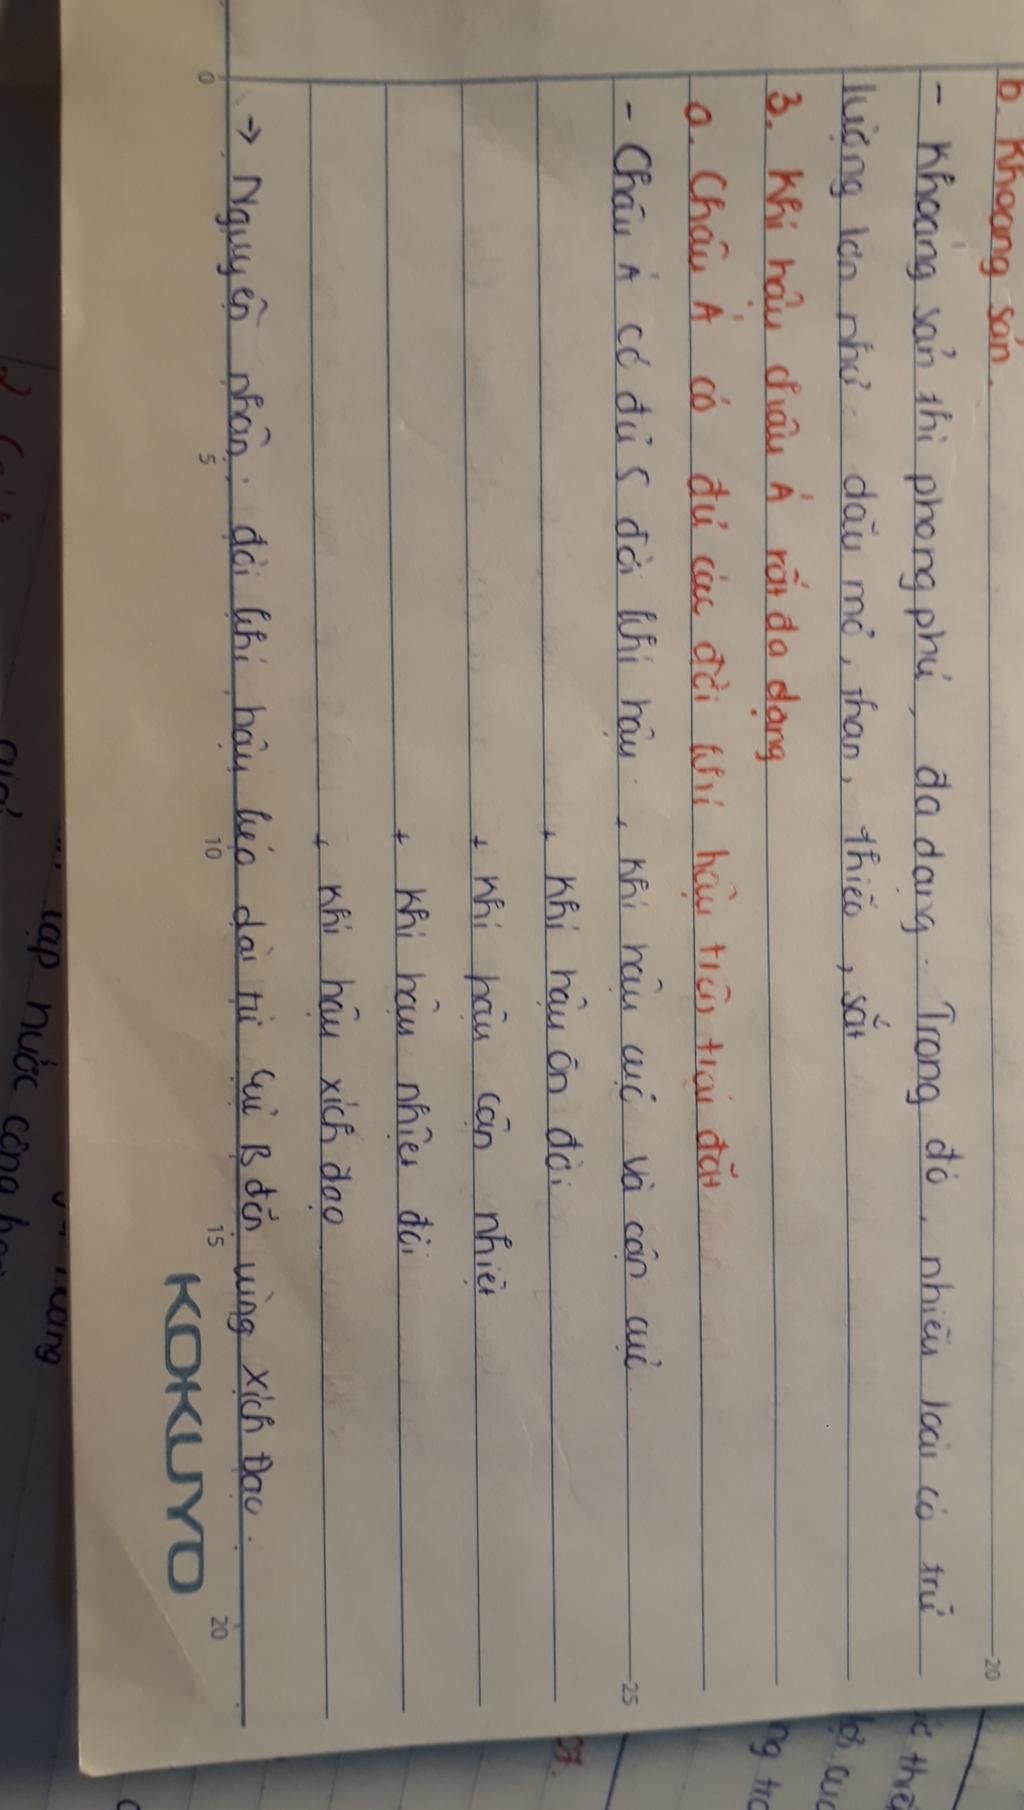 b. Khoáng sản.
- Khoáng sản thì phong phú, đa dạng. Trong đó, nhiều loại có trữ
lượng lớn như: dầu mỏ, than, thiếc, sắt
3. Khí hậu châu Á rất đa dạng
a. Châu Á có đủ các đới khí hậu trên trái đất
- Châu Á có đủ 5 đới khí hậu: + khí hậu cực và cận cực.
+ khí hậu ôn đới
+ khí hậu cận nhiệt
+ khí hậu nhiệt đới
+ khí hậu xích đạo
→ Nguyên nhân: đới khí hậu kéo dài từ cực B đến vùng xích Đạo.
0 5 10 15 20
KOKUYO
20
25
lập nước cộng